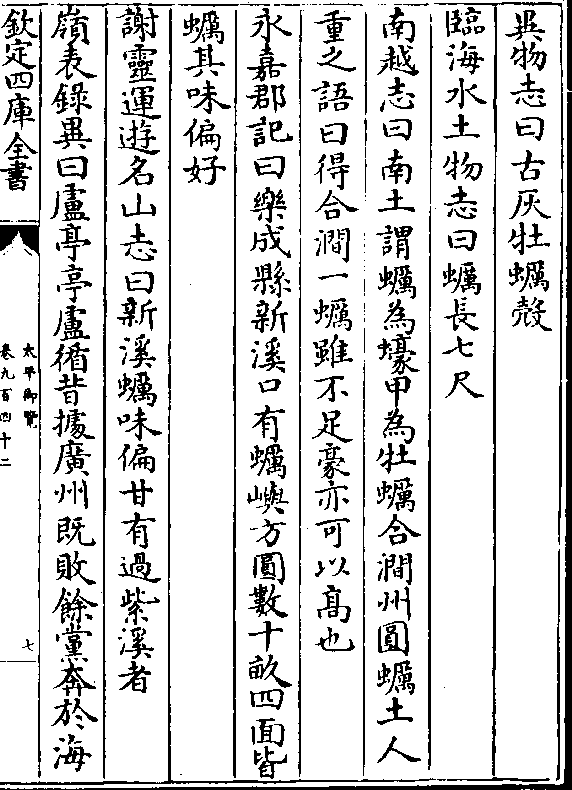 異物志曰古灰牡蠣殼
臨海水土物志曰蠣長七尺
南越志曰南土謂蠣為蠔甲為牡蠣合澗州圓蠣土人
重之語曰得合澗一蠣雖不足豪亦可以髙也
永嘉郡記曰樂成縣新溪口有蠣嶼方圓數十畝四面皆
蠣其味偏好
謝靈運遊名山志曰新溪蠣味偏甘有過紫溪者
嶺表錄異曰盧亭亭盧循昔據廣州既敗餘黨奔於海
欽定四庫全書
太平御覽
卷九百四十二
七